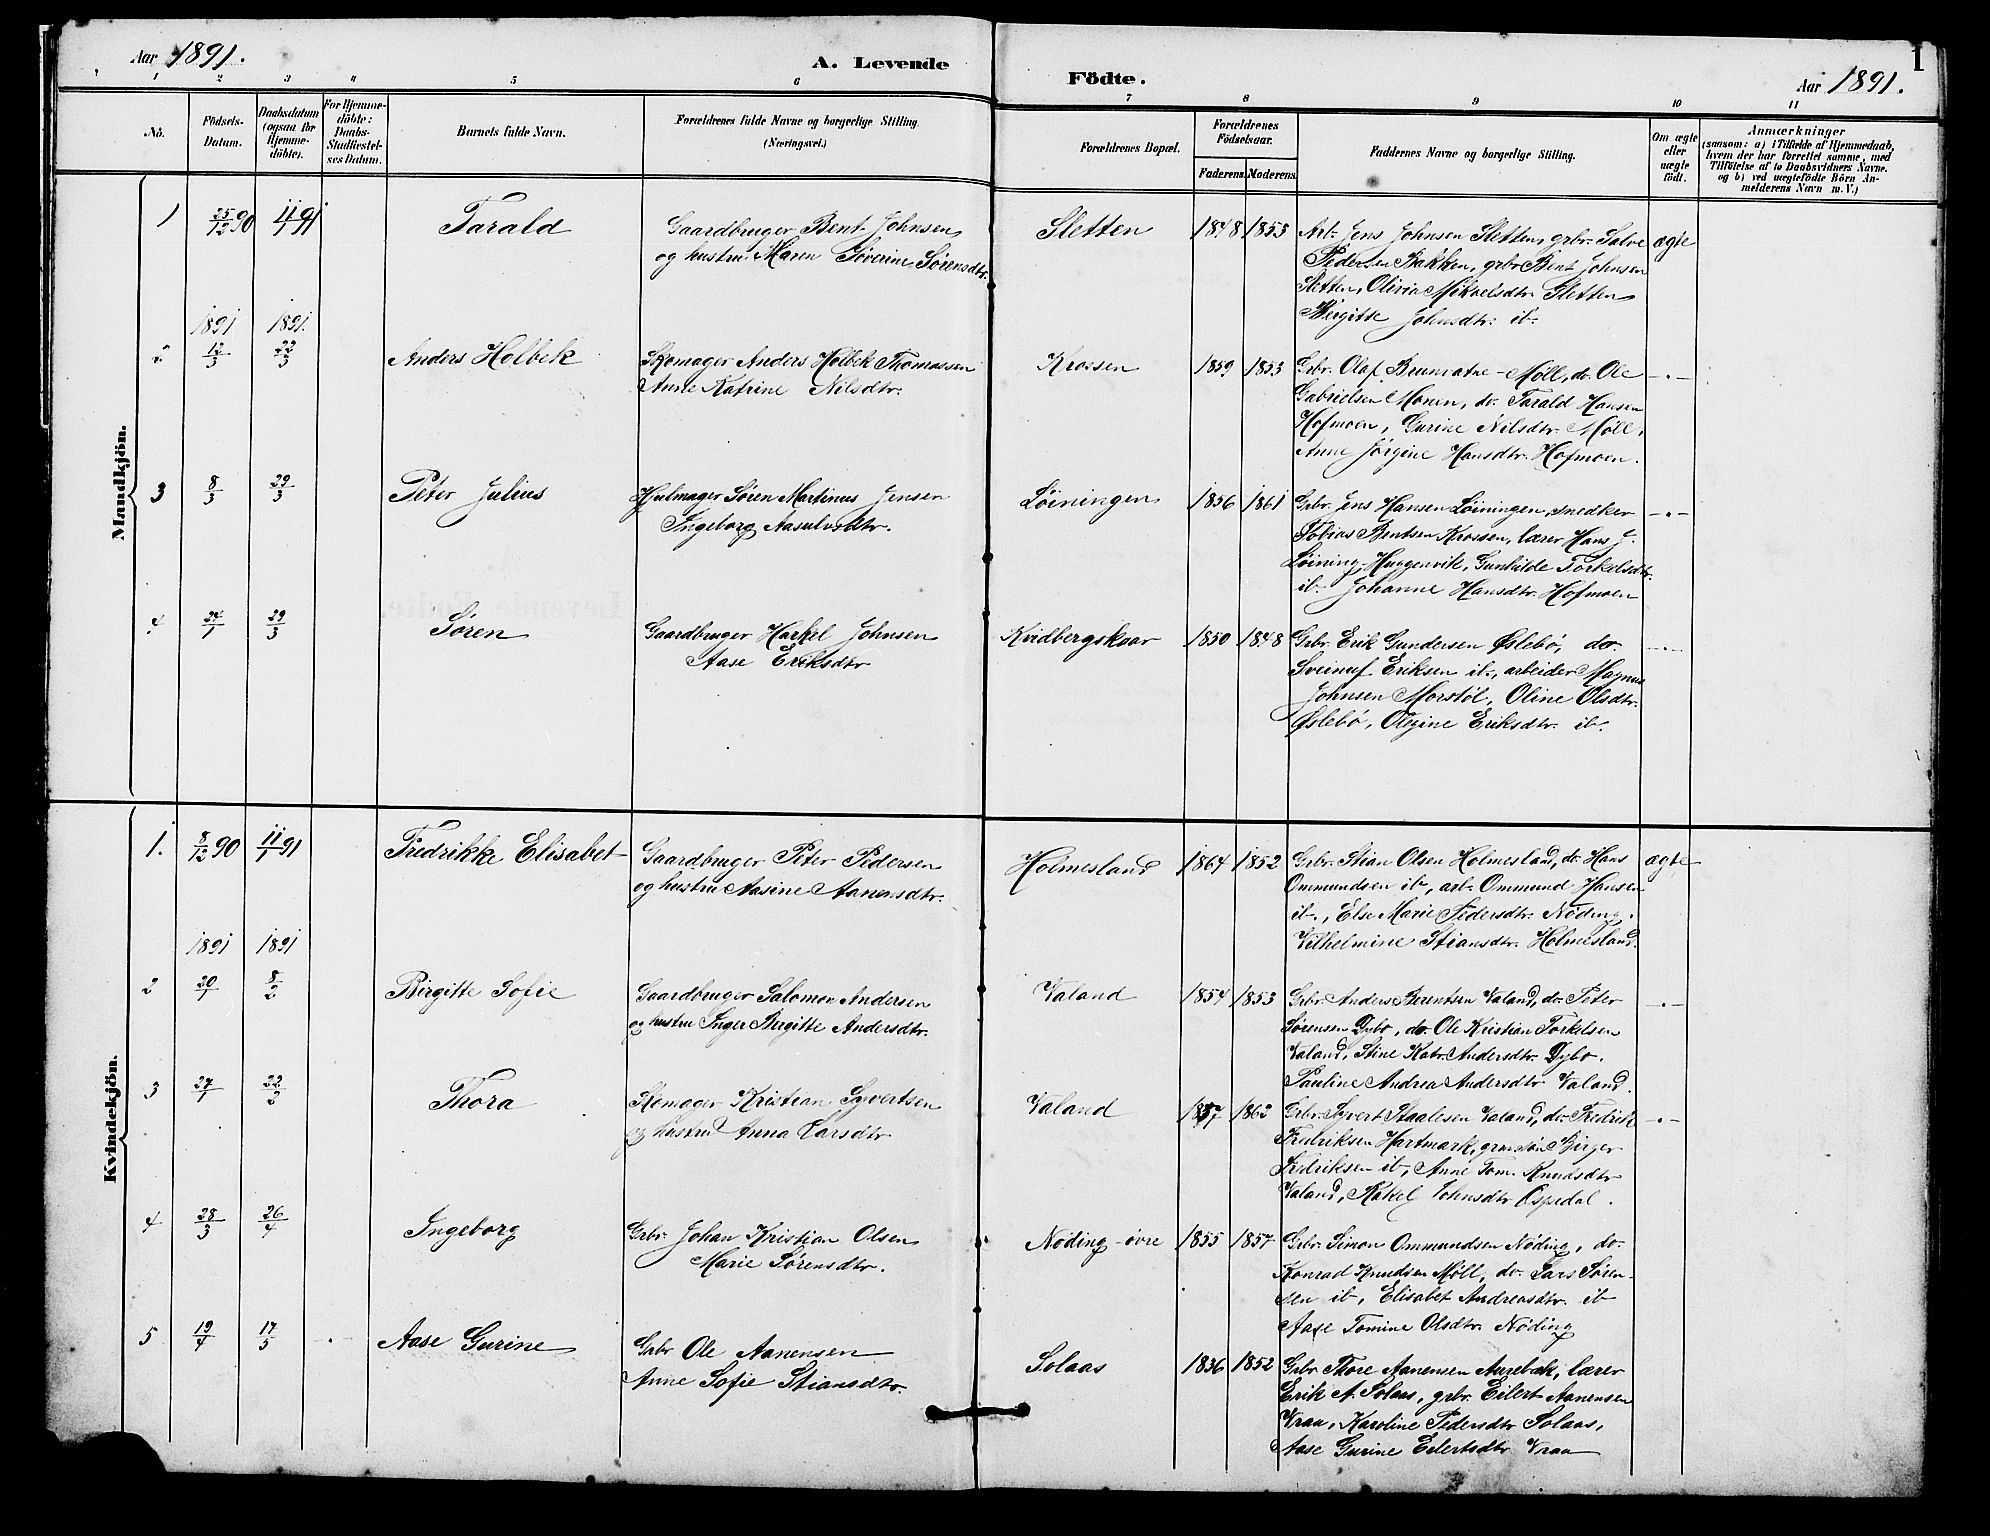 Aar 1891.
A. Levende
Födte.
Aar 1891.
1
1 2 3 4 5 6 7 8 9 10 11
No.
Födsels-
Datum.
Daabsdatum
(ogsaa for
Hjemme-
döbte).
For Hjemme-
döbte:
Daabs-
Stadfæstel-
ses Datum.
Barnets fulde Navn.
Forældrenes fulde Navne og borgerlige Stilling.
(Næringsvei.)
Forældrenes Bopæl.
Forældrenes
Födselsaar.
Faderens.
Moderens.
Faddernes Navne og borgerlige Stilling.
Om ægte
eller
uægte
födt.
Anmærkninger
(saasom: a) i Tilfælde af Hjemmedaab,
hvem der har forrettet samme, med
Tilföielse af to Daabsvidners Navne.
og b) ved uægtefödte Börn An-
melderens Navn m. V.)
Mandkjön.
1 25/12 90 11/1 91 Tarald
Gaardbruger Bent Johnsen
og hustru Maren Severine Sørensdtr.
Sletten 1848 1853
Arb. Jens Johnsen Sletten, grbr. Salve
Pedersen Bakken, grbr Bent Johnsen
Sletten, Olivia Mikaelsdtr. Sletten
Birgitte Johnsdtr. ib.
ægte
1891 1891.
2 12/3 22/3 Anders Holbek
Skomager Anders Holbek Thomassen
Anne Katrine Nilsdtr.
Krossen 1859 1853
Grbr. Olaf Brunvatne - Möll, do. Ole
Gabrielsen Monen, do. Tarald Hansen
Hofmoen, Gurine Nilsdtr. Møll,
Anne Jørgine Hansdtr. Hofmoen.
-.-
3 8/3 29/3 Peter Julius
Hjulmager Søren Martinus Jensen
Ingeborg Aasulvsdtr.
Løiningen 1856 1861
Grbr. Jens Hansen Løiningen, snedker
Tobias Bentsen Krossen, lærer Hans J.
Løining Huggenvik, Gunhilde Torkelsdtr.
ib. Johanne Hansdtr. Hofmoen
-.-
4 24/1 29/3 Søren
Gaardbruger Harkel Johnsen
Aase Eriksdtr
Kvidbergskaar 1850 1848
Grbr. Erik Gundersen Øslebö, do.
Sveinuf Eriksen ib., arbeider Magnus
Johnsen Morstöl, Oline Olsdtr.
Øslebö, Olgine Eriksdtr. ib.
-.-
Kvindekjön.
1. 8/12 90 11/1 91 Fredrikke Elisabet
Gaardbruger Peter Pedersen
og hustru Aasine Aanensdtr.
Holmesland 1864 1852
Grbr. Stian Olsen Holmesland, do. Hans
Ommundsen ib, arb. Ommund Hansen
ib., Else Marie Pedersdtr. Nøding.
Vilhelmine Stiansdtr. Holmesland.
ægte
1891 1891
2 20/1 8/2 Birgitte Sofie
Gaardbruger Salomon Andersen
og hustru Inger Birgitte Andersdtr.
Valand 1854 1853
Grbr. Anders Berentsen Valand, do. Peter
Sørensen Dybo, do. Ole Kristian Torkelsen
Valand, Stine Katr. Andersdtr. Dybo.
Pauline Andrea Andersdtr. Valand.
-.-
3 27/1 22/2 Thora
Skomager Kristian Syvertsen
og hustru Anna Larsdtr
Valand 1857 1862
Grbr. Syvert Staalesen Valand, do. Fredrik
Fredriksen Hartmark, grm. søn Birger
Fredriksen ib, Anne Tom. Knudsdtr
Valand, Rakel Johnsdtr Ospedal.
-.-
4 28/3 26/4 Ingeborg
Grbr. Johan Kristian Olsen
Marie Sørensdtr.
Nøding - övre 1855 1857
Grbr. Simon Ommundsen Nöding, do.
Konrad Knudsen Møll, do. Lars Søren-
sen ib, Elisabet Andreasdtr. ib
Aase Tomine Olsdtr. Nøding
5 19/4 17/5 Aase Gurine
Grbr Ole Aanensen
Anne Sofie Stiansdtr.
Solaas 1836 1852
Grbr Thore Aanensen Aurebæk, lærer
Erik A. Solaas, grbr. Eilert Aanensen
Vraa, Karoline Pedersdtr Solaas,
Aase Gurine Eilertsdtr Vraa